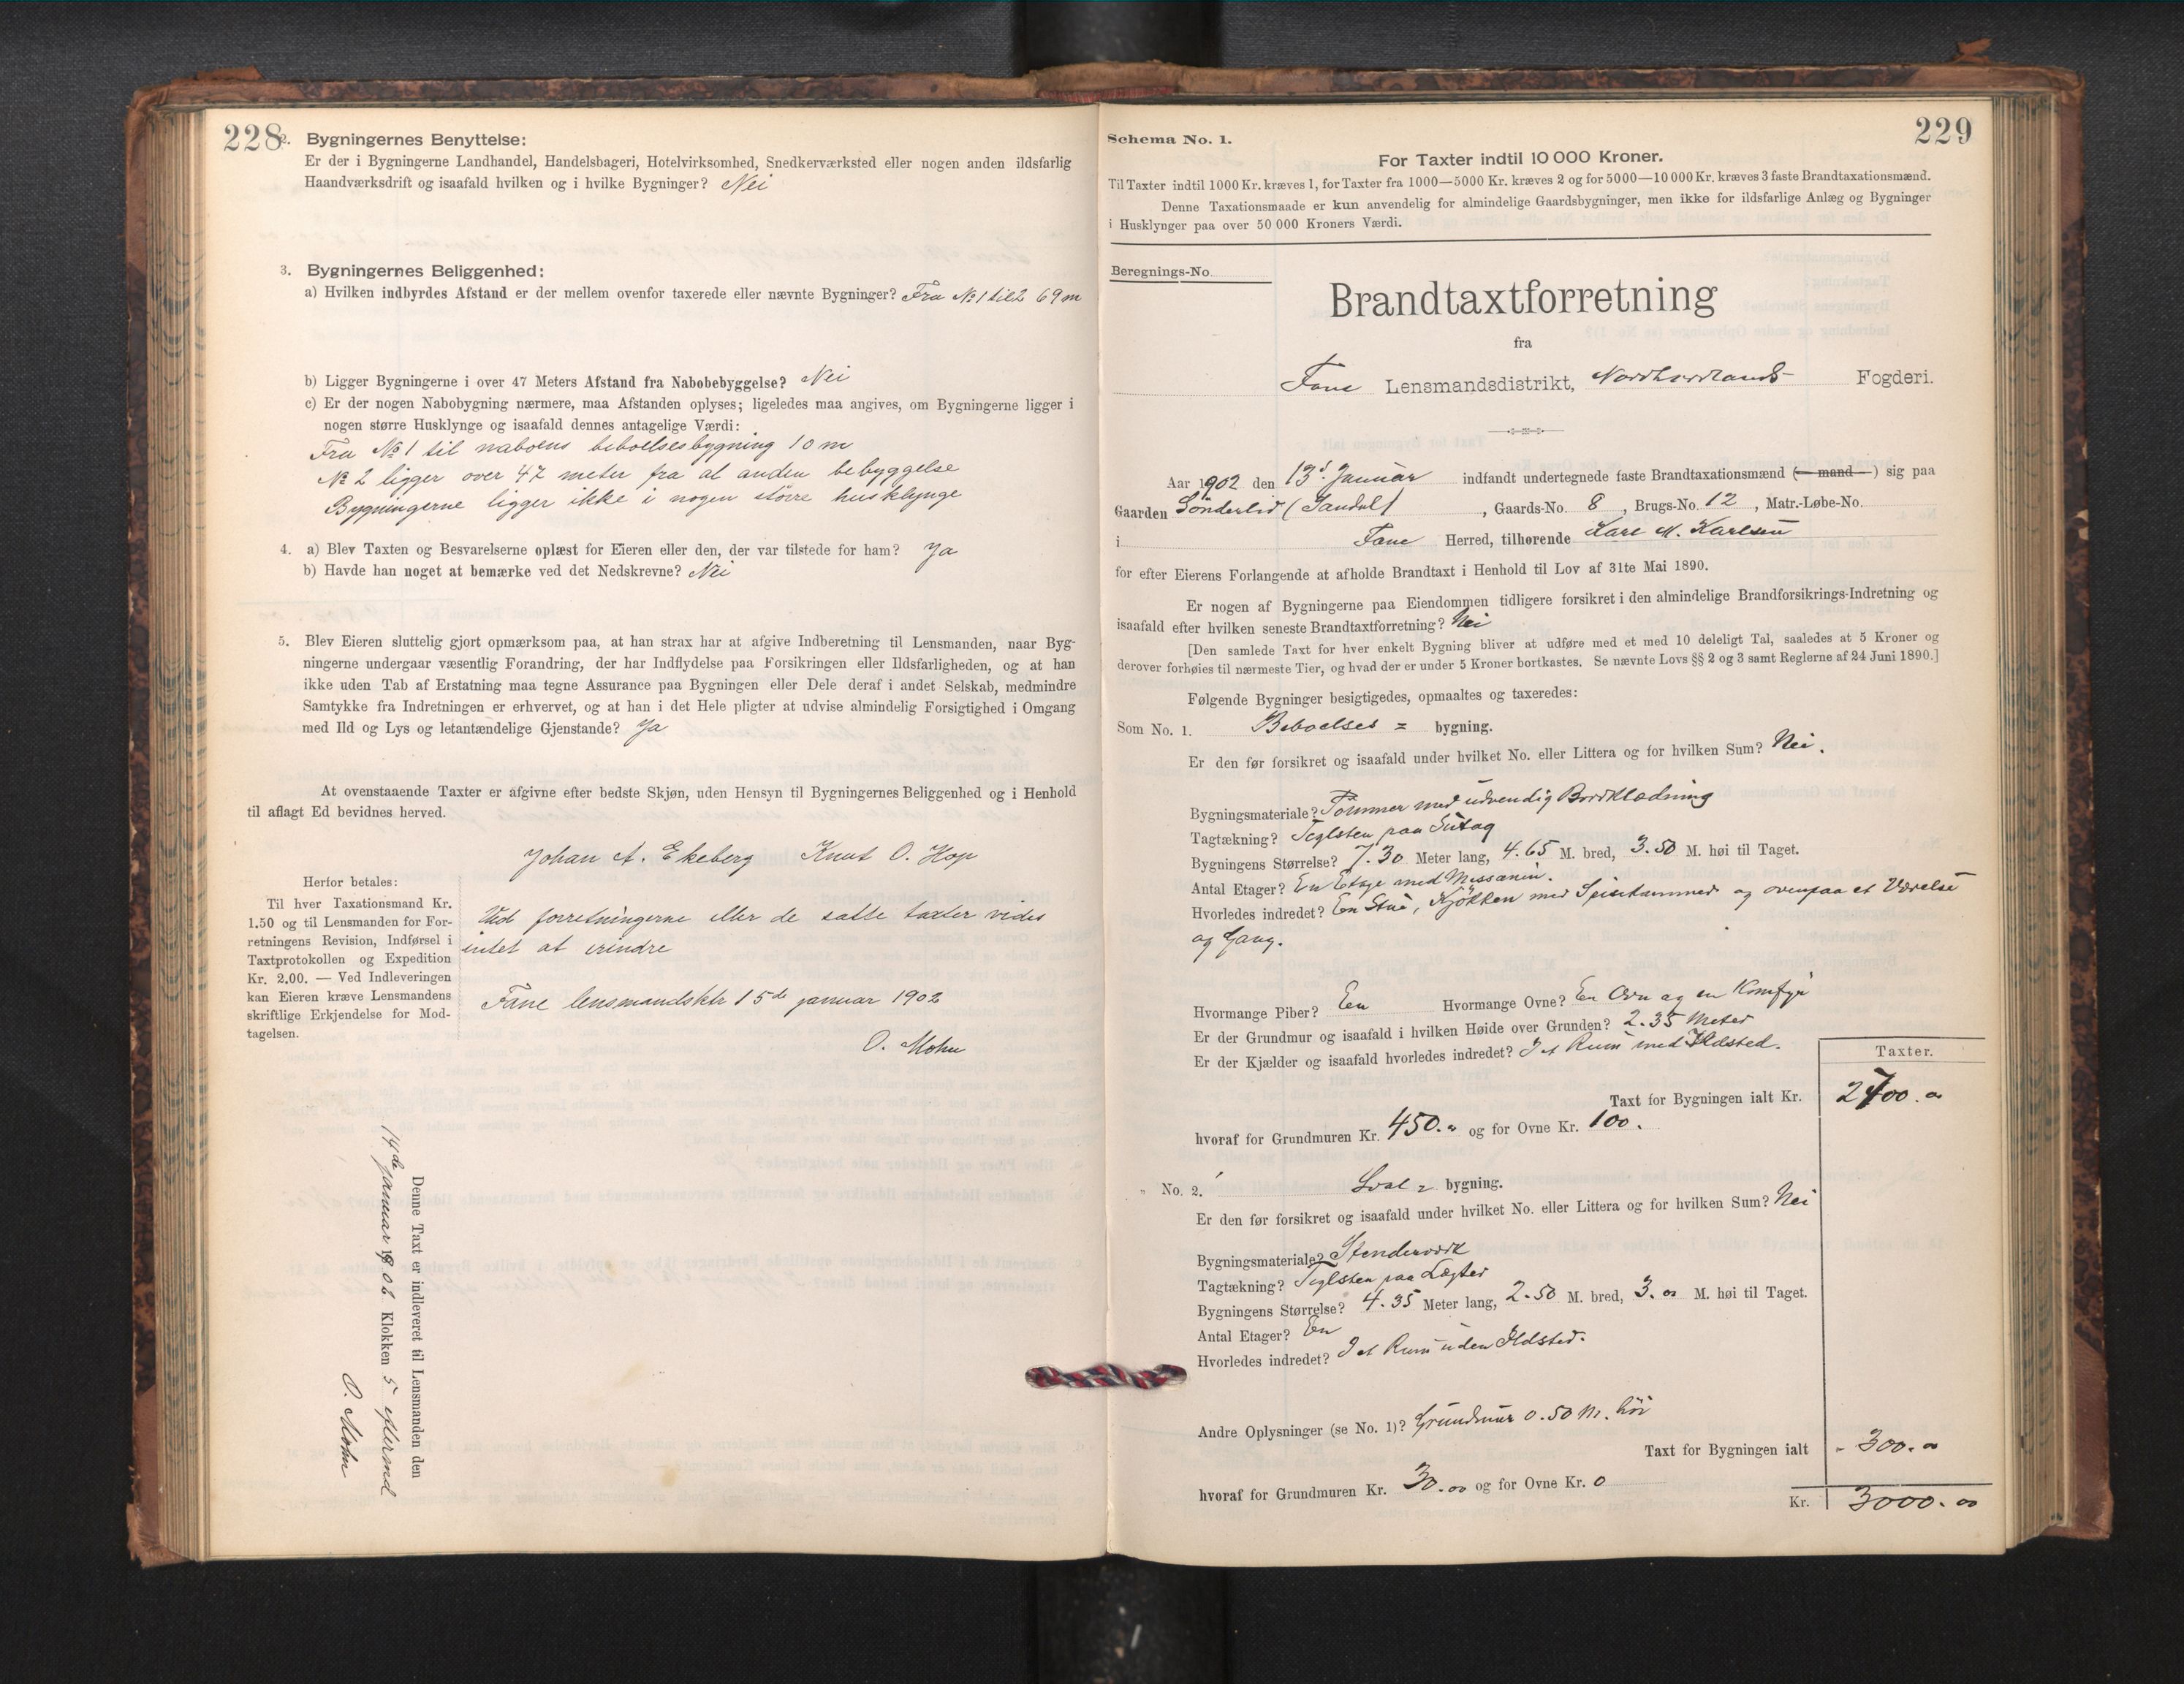 228
2. Bygningernes Benyttelse:
Er der i Bygningerne Landhandel, Handelsbageri, Hotelvirksomhed, Snedkerværksted eller nogen anden ildsfarlig
Haandværksdrift og isaafald hvilken og i hvilke Bygninger? Nei
3. Bygningernes Beliggenhed:
a) Hvilken indbyrdes Afstand er der mellem ovenfor taxerede eller nævnte Bygninger? Fra № 1 til 2 69 m
b) Ligger Bygningerne i over 47 Meters Afstand fra Nabobebyggelse? Nei
c) Er der nogen Nabobygning nærmere, maa Afstanden oplyses; ligeledes maa angives, om Bygningerne ligger i
nogen større Husklynge og isaafald dennes antagelige Værdi:
Fra № 1 til naboens beboelsesbygning 10 m
№ 2 ligger over 47 meter fra al anden bebyggelse
Bygningerne ligger ikke i nogen större husklynge
4. a) Blev Taxten og Besvarelserne oplæst for Eieren eller den, der var tilstede for ham? Ja
b) Havde han noget at bemærke ved det Nedskrevne? Nei
5. Blev Eieren sluttelig gjort opmærksom paa, at han strax har at afgive Indberetning til Lensmanden, naar Byg-
ningerne undergaar væsentlig Forandring, der har Indflydelse paa Forsikringen eller Ildsfarligheden, og at han
ikke uden Tab af Erstatning maa tegne Assurance paa Bygningen eller Dele deraf i andet Selskab, medmindre
Samtykke fra Indretningen er erhvervet, og at han i det Hele pligter at udvise almindelig Forsigtighed i Omgang
med Ild og Lys og letantændelige Gjenstande? Ja
At ovenstaaende Taxter er afgivne efter bedste Skjøn, uden Hensyn til Bygningernes Beliggenhed og i Henhold
til aflagt Ed bevidnes herved.
Johan A. Ekeberg Knut O. Hop
Herfor betales:
Til hver Taxationsmand Kr.
1.50 og til Lensmanden for For-
retningens Revision, Indførsel i
Taxtprotokollen og Expedition
Kr. 2.00. — Ved Indleveringen
kan Eieren kræve Lensmandens
skriftlige Erkjendelse for Mod-
tagelsen.
Ved forretningerne eller de satte taxter vides
intet at erindre
Fane lensmandsktr 15de januar 1902
O. Mohn
Denne Taxt er indleveret til Lensmanden den
14de januar 1902 Klokken 5 eftermd
O. Mohn
229
Schema No. 1.
For Taxter indtil 10 000 Kroner.
Til Taxter indtil 1000 Kr. kræves 1, for Taxter fra 1000—5000 Kr. kræves 2 og for 5000—10 000 Kr. kræves 3 faste Brandtaxationsmænd.
Denne Taxationsmaade er kun anvendelig for almindelige Gaardsbygninger, men ikke for ildsfarlige Anlæg og Bygninger
i Husklynger paa over 50 000 Kroners Værdi.
Beregnings-No.
Brandtaxtforretning
fra
Fane Lensmandsdistrikt, Nordhordlands Fogderi.
Aar 1902 den 13d Januar indfandt undertegnede faste Brandtaxationsmænd (— mand —) sig paa
Gaarden Sönderlid (Sandal) , Gaards-No. 8 , Brugs-No. 12 , Matr.-Løbe-No.
i Fane Herred, tilhørende Karl M. Karlsen
for efter Eierens Forlangende at afholde Brandtaxt i Henhold til Lov af 31te Mai 1890.
Er nogen af Bygningerne paa Eiendommen tidligere forsikret i den almindelige Brandforsikrings-Indretning og
isaafald efter hvilken seneste Brandtaxtforretning? Nei
[Den samlede Taxt for hver enkelt Bygning bliver at udføre med et med 10 deleligt Tal, saaledes at 5 Kroner og
derover forhøies til nærmeste Tier, og hvad der er under 5 Kroner bortkastes. Se nævnte Lovs §§ 2 og 3 samt Reglerne af 24 Juni 1890.]
Følgende Bygninger besigtigedes, opmaaltes og taxeredes:
Som No. 1. Beboelses = bygning.
Er den før forsikret og isaafald under hvilket No. eller Littera og for hvilken Sum? Nei.
Bygningsmateriale? Tömmer med udvendig Bordklædning
Tagtækning? Teglsten paa Sutag
Bygningens Størrelse? 7.30 Meter lang, 4.65 M. bred, 3.50 M. høi til Taget.
Antal Etager? En Etage med Messanin.
Hvorledes indredet? En Stue, Kjökken med Spisekammer og ovenpaa et Værelse
og Gang.
Hvormange Piber? Een Hvormange Ovne? En Ovn og en Komfyr
Er der Grundmur og isaafald i hvilken Høide over Grunden? 2.35 Meter
Er der Kjælder og isaafald hvorledes indredet? I et Rum med Ildsted.
Taxter.
Taxt for Bygningen ialt Kr. 2700.00
hvoraf for Grundmuren Kr. 450.00 og for Ovne Kr. 100.
" No. 2. Sval = bygning.
Er den før forsikret og isaafald under hvilket No. eller Littera og for hvilken Sum? Nei
Bygningsmateriale? Stenderværk
Tagtækning? Teglsten paa Lægter
Bygningens Størrelse? 4.35 Meter lang, 2.50 M. bred, 3.00 M. høi til Taget.
Antal Etager? En
Hvorledes indredet? I et Rum uden Ildsted.
Andre Oplysninger (se No. 1)? Grundmur 0.50 M. höi
Taxt for Bygningen ialt - 300.00
hvoraf for Grundmuren Kr. 30.00 og for Ovne Kr. 0
Kr. 3000.00